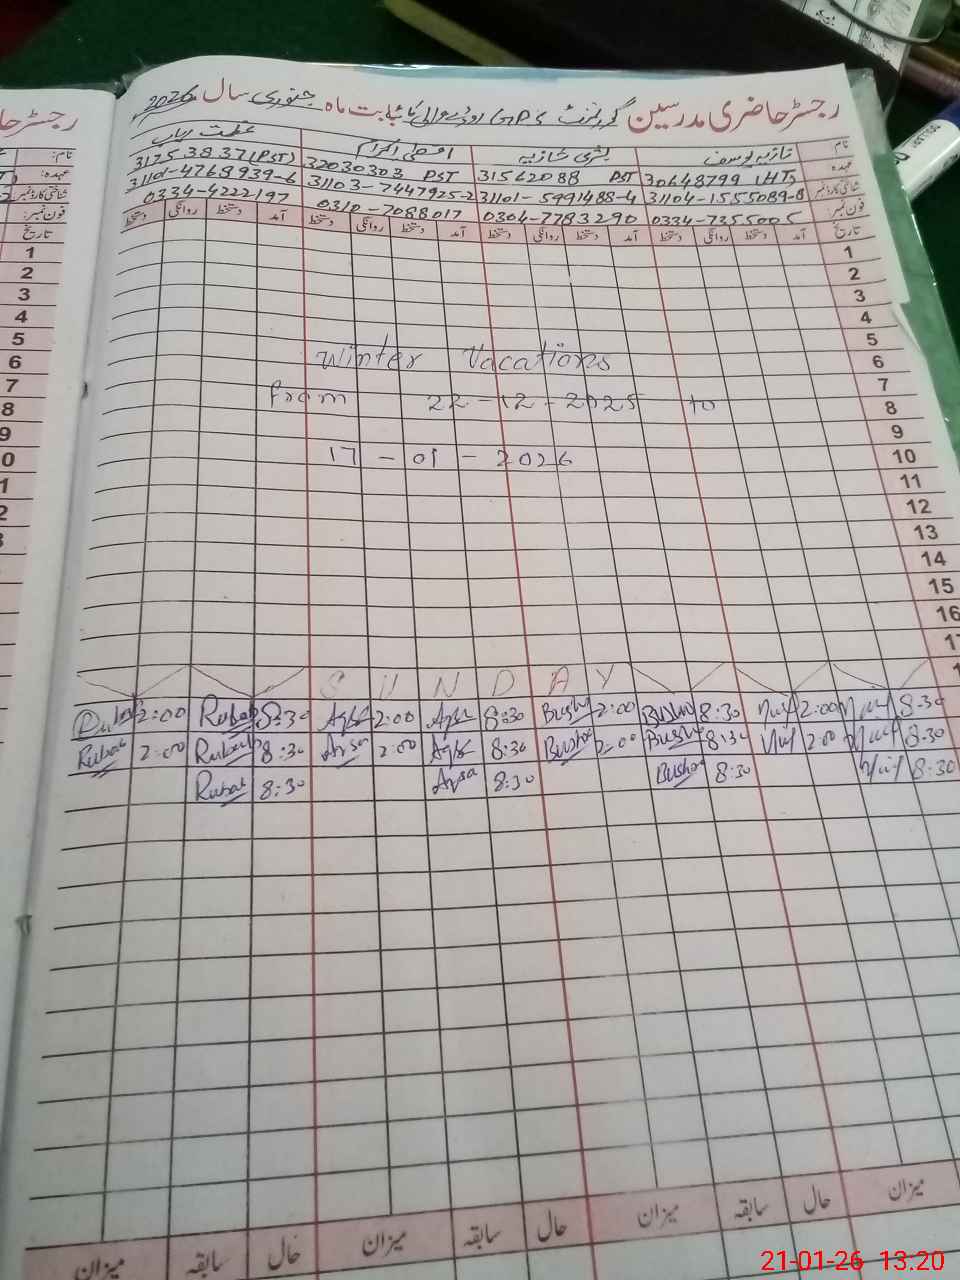 رجسٹر حاضری مدرسین گورنمنٹ GPS بابت ماہ جنوری سال 2026
نام: نازیہ یوسف بشریٰ شازیہ اقصیٰ اکرام
عہدہ 30648799 (HT) 31562088 PST 32030303 PST 31753837 (PST)
شناختی کارڈ نمبر 31104-1555089-8 31101-5991488-4 31103-7447925-2 31101-4768939-6
فون نمبر: 0334-7355005 0304-7783290 0310-7088017 0334-4222197
تاریخ آمد دستخط روانگی دستخط آمد دستخط روانگی دستخط آمد دستخط روانگی دستخط آمد دستخط روانگی دستخط
1
2
3
4
5
6 Winter Vacations
7
8 from 22-12-2025 to
9
10 17-01-2026
11
12
13
14
15
16
17
SUNDAY
2:00 Rubab 8:30 Aqsa 2:00 Aqsa 8:30 Bushra 2:00 Bushra 8:30 2:00 8:30
Rubab 2:00 Rubab 8:30 Aqsa 2:00 Aqsa 8:30 Bushra 2:00 Bushra 8:30 2:00 8:30
Rubab 8:30 Aqsa 8:30 Bushra 8:30 8:30
میزان حال سابقہ میزان حال سابقہ میزان حال سابقہ میزان
21-01-26 13.20